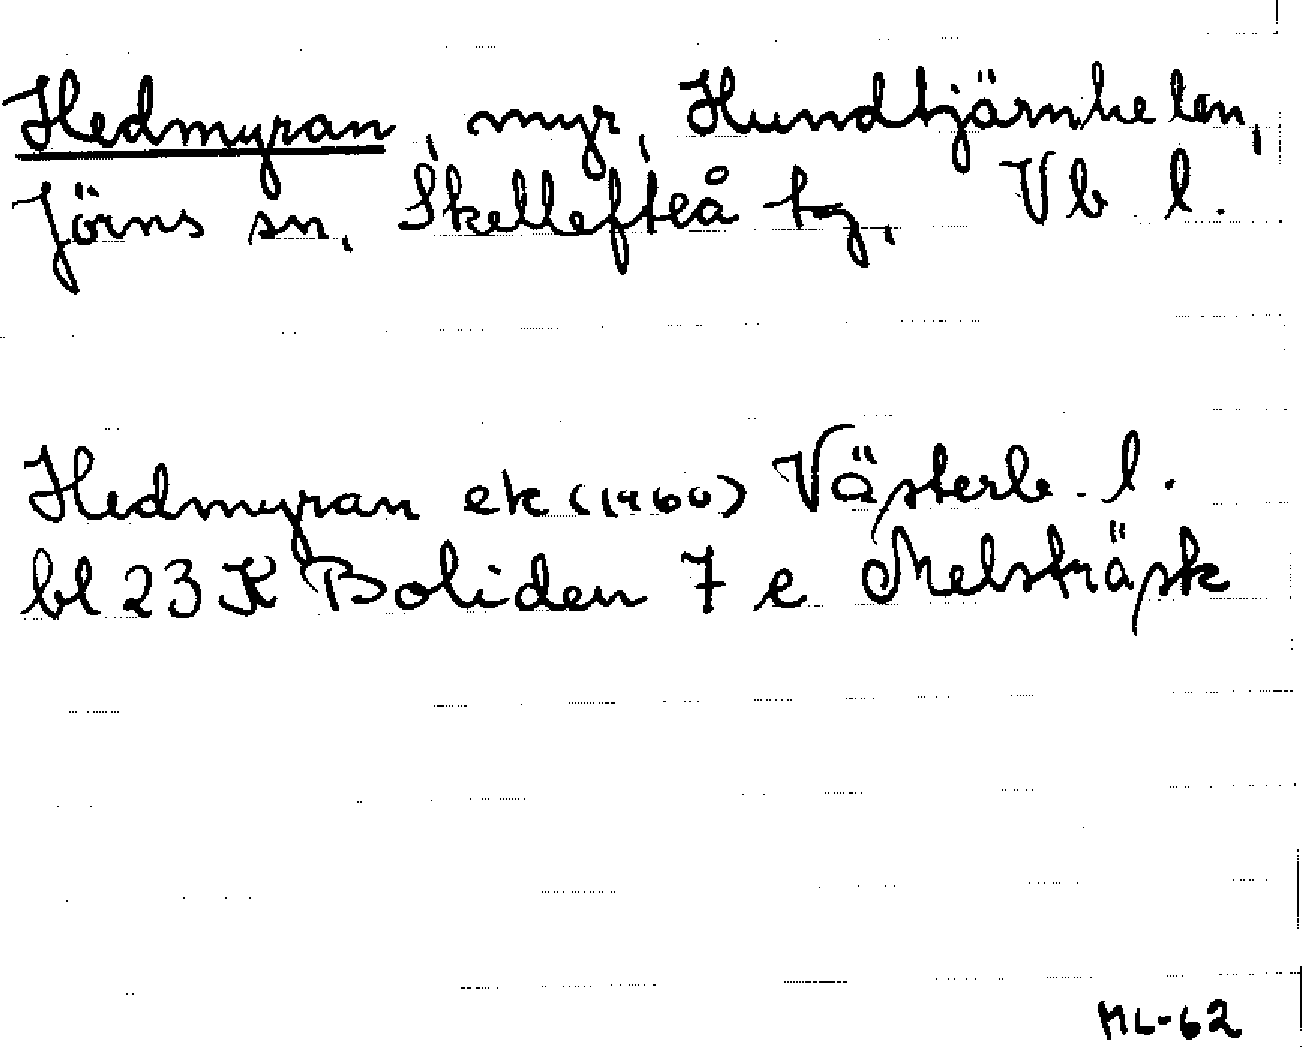 Hedmyran, myr, Hundtjärnheten,
Jörns sn, Skellefteå tg, Vb l.
Hedmyran ek (1960) Västerb. l.
bl 23 K Boliden 7 e Melsträsk
ML-62